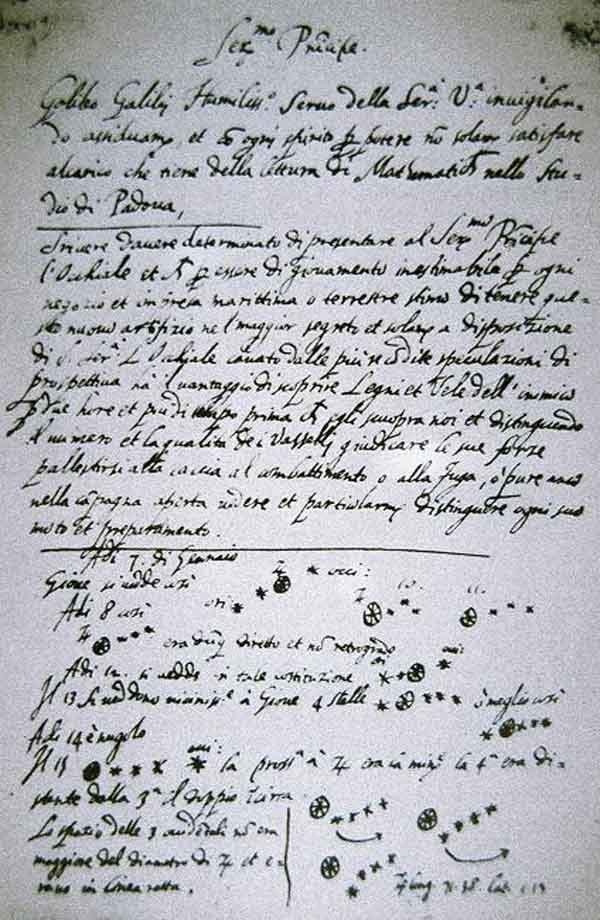 Ser.mo Principe.
Galileo Galilei Humiliss.o Servo della Ser.a V.a invigilan-
do assiduam.te, et cō ogni spirito p potere nō solam.te satisfare
al carico che tiene della lettura di Mathematiche nello Stu-
dio di Padova,
Scrivere d'avere determinato di presentare al Ser.mo Principe
l'Occhiale et p essere di giovamento inestimabile p ogni
negozio et impresa marittima o terrestre stimo di tenere que-
sto nuovo artifizio nel maggior segreto et solam.te a disposizione
di S. Ser.a L'Occhiale cavato dalle più recōdite speculazioni di
prospettiva hà il vantaggio di scoprire Legni et Vele dell'inimico
p due hore et più di tempo prima ch' egli scuopra noi et distinguendo
il numero et la qualità dei Vasselli giudicare le sue forze
pallestirsi alla caccia al combattimento o alla fuga, o pure anco
nella cāpagna aperta vedere et particolarm.te distinguere ogni suo
moto et preparamento.
Adi 7. di Gennaio
Gioue si vedde così
occi:
Adi 8 così
ori:
10.
11.
era dūq diretto et nō retrogrado
Adi 12. si vedde in tale costituzione
Il 13 si veddono vicinis.e à Gioue 4 stelle
è meglio così
Adi 14 è nugolo
Il 15
la pross.a à ♃ era la min.e la 4.a era di-
stante dalla 3.a il doppio circa
Lo spazio delle 3 occidētali nō era
maggiore del diametro di ♃ et e-
rano in linea retta.